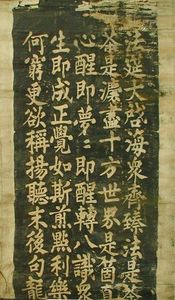 法筵大啓海衆齊臻法是茶
茶是灋盡十方世界是箇真
心醒即夢〻即醒轉八識衆
生即成正覺如斯煎點利樂
何窮更欲稱揚聽末後句龍